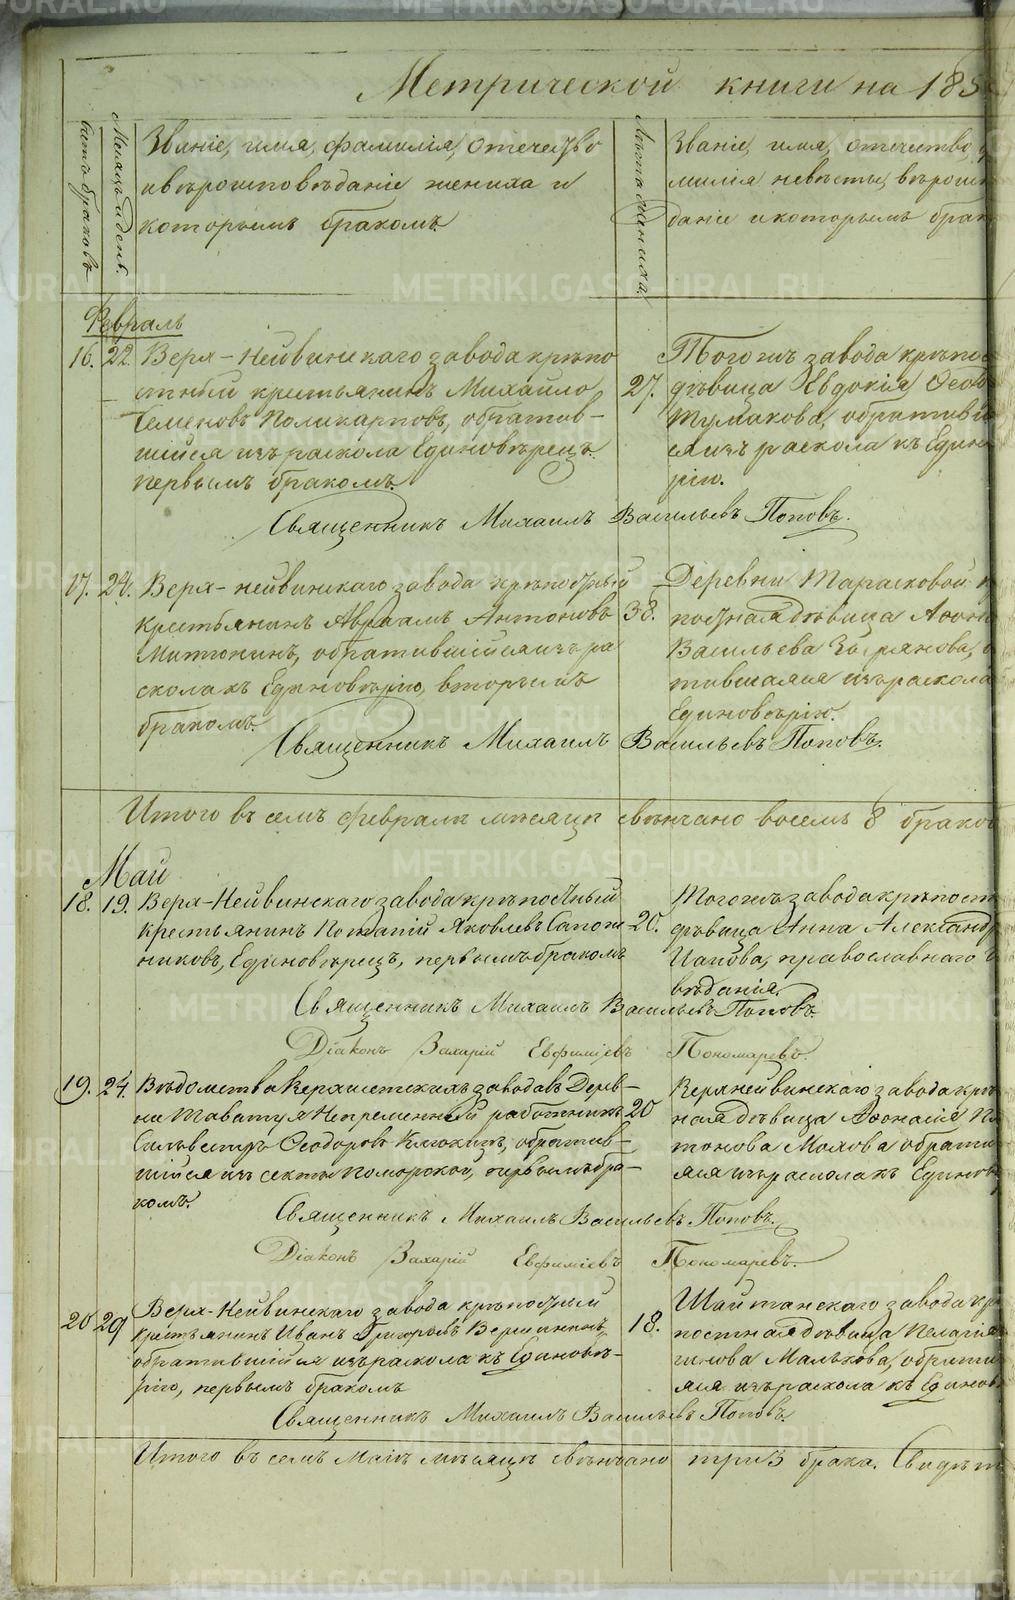 Метрической книги на 185
Счетъ браковъ
Мѣсяцъ и день.
Званіе, имя, фамилія, отечество
и вѣроисповѣданіе жениха и
которымъ бракомъ.
Лѣта жениха.
Званіе, имя, отечество, ф
милія невѣсты, вѣроисп
даніе и которымъ брак
Февраль
16. 22. Верх-Нейвинскаго завода крѣпо
стный крестьянинъ Михайло
Семеновъ Поликарповъ, обратив-
шійся изъ раскола Единовѣрецъ
первымъ бракомъ.
27.
Тогожъ завода крѣпос
дѣвица Евдокія Ѳеод
Турмакова, обратив
ся изъ раскола къ Един
рію.
Священникъ Михаилъ Васильевъ Поповъ.
17. 24. Верх-нейвинскаго завода крѣпостный
крестьянинъ Авраамъ Антоновъ
Митюнинъ, обратившійся изъ ра
скола къ Единовѣрію, вторымъ
бракомъ.
38.
Деревни Тарасковой к
постная дѣвица
Васильева о
тившаяся изъ раскола
Единовѣрію.
Священникъ Михаилъ Васильевъ Поповъ.
Итого въ семъ февралѣ мѣсяцѣ свѣнчано восемь 8 браков
Май
18. 19. Верх-Нейвинскаго завода крѣпостный
крестьянинъ Потапій Яковлевъ Сапож
никовъ, Единовѣрецъ, первымъ бракомъ
20.
Тогожъ завода крѣпост
дѣвица Анна Александр
Цапова, православнаго
вѣданія.
Священникъ Михаилъ Васильевъ Поповъ.
Діаконъ Захарій Евфиміевъ Пономаревъ.
19. 24. Вѣдомства Верхисетскихъ заводовъ Дерев-
ни Таватуя Непременный работникъ
Сильвестръ Ѳеодоровъ обратив-
шійся изъ секты Поморской, первымъ бра-
комъ.
20
Верхнейвинскаго завода крѣ
ная дѣвица Аѳонасія Пл
тонова Мохова обрати
яся изъ раскола къ Единов
Священникъ Михаилъ Васильевъ Поповъ.
Діаконъ Захарій Евфиміевъ Пономаревъ.
20 29 Верх-Нейвинскаго завода крѣпостный
крестьянинъ Иванъ Григорьевъ Вершининъ,
обратившійся изъ раскола къ Единовѣ-
рію, первымъ бракомъ
18.
Шайтанскаго завода кр
постная дѣвица Пелагія
гинова Малькова, обрати
яся изъ раскола къ Единов
Священникъ Михаилъ Васильевъ Поповъ.
Итого въ семъ Маіѣ мѣсяцѣ свѣнчано три 3 брака. Свидѣт
METRIKI.GASO-URAL.RU